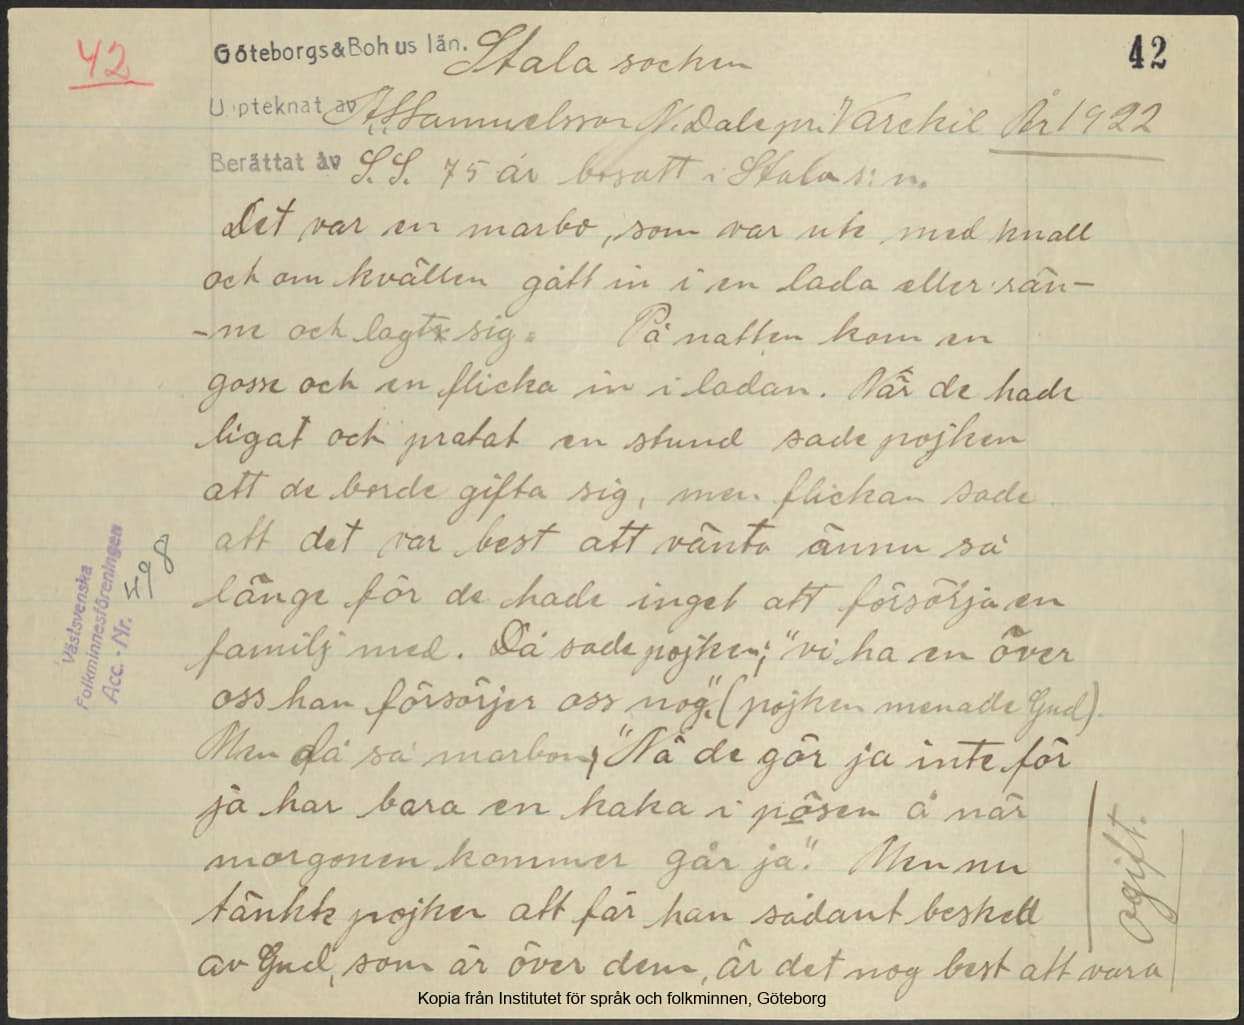 42
Göteborgs & Bohus län. Stala socken 42
Uppteknat av A. Samuelsson N. Dale pr. Varekil År 1922
Berättat av S.S. 75 år bosatt i Stala s:n.
Det var en marbo, som var ute med knall
och om kvällen gått in i en lada eller rän-
-ne och lagt sig. På natten kom en
gosse och en flicka in i ladan. När de hade
ligat och pratat en stund sade pojken
att de borde gifta sig, men flickan sade
att det var best att vänta ännu så
länge för de hade inget att försörja en
familj med. Då sade pojken; "vi ha en över
oss han försörjer oss nog". (pojken menade Gud).
Men då sa marbon; "Nä de gör ja inte för
ja har bara en kaka i pösen å när
morgonen kommer går ja". Men nu
tänkte pojken att får han sådant besked
av Gud, som är över dem, är det nog best att vara
ogift.
Västsvenska
Folkminnesföreningen
Acc.-Nr. 498
Kopia från Institutet för språk och folkminnen, Göteborg